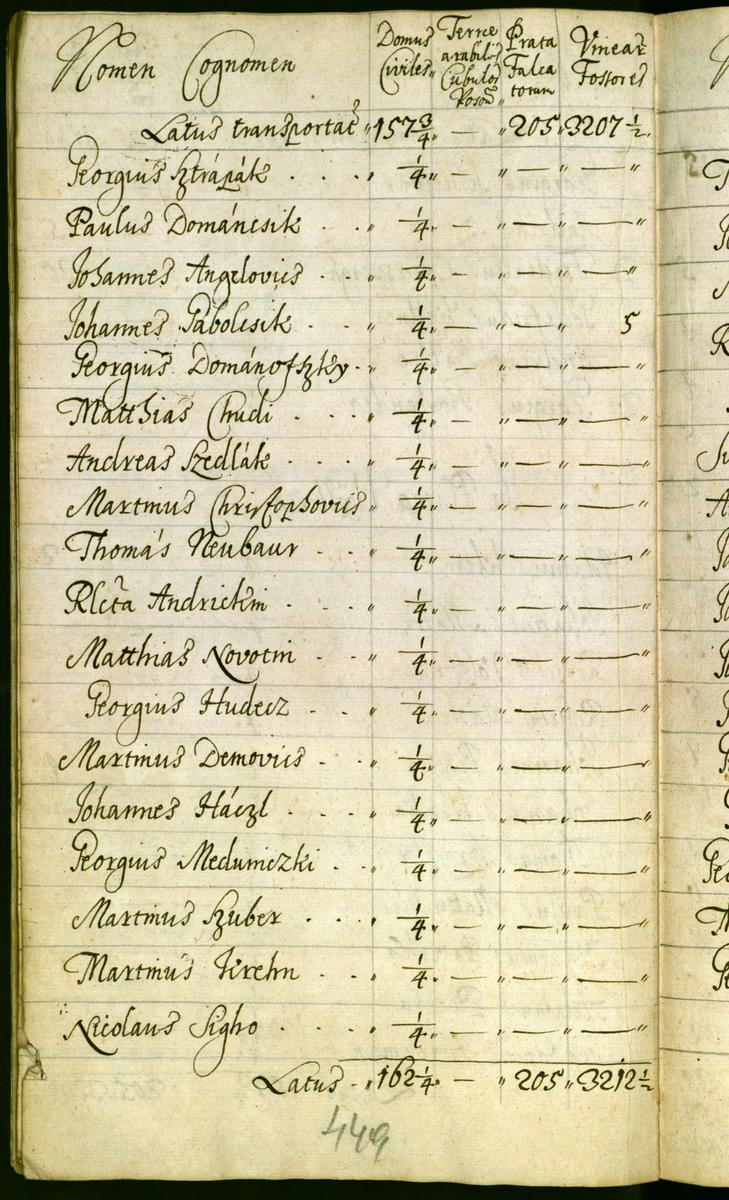 Nomen Cognomen Domus Civiles Terræ arabilis Cubulos Poson Prata Falcatorum Vineæ Fossores
Latus transportat 157 3/4 — 205 3207 1/2
Georgius Sztrápák 1/4 — — —
Paulus Dománcsik 1/4 — — —
Johannes Angelovics 1/4 — — —
Johannes Gábolcsik 1/4 — — 5
Georgius Dománofszky 1/4 — — —
Matthias Chudi 1/4 — — —
Andreas Szedlák 1/4 — — —
Martinus Christophovics 1/4 — — —
Thomás Neubaur 1/4 — — —
Rlcta Andrickin 1/4 — — —
Matthias Novotni 1/4 — — —
Georgius Hudecz 1/4 — — —
Martinus Demovics 1/4 — — —
Johannes Háczl 1/4 — — —
Georgius Meduniczki 1/4 — — —
Martinus Szuber 1/4 — — —
Martinus Krehn 1/4 — — —
Nicolaus Sigho 1/4 — — —
Latus 162 1/4 — 205 3212 1/2
449